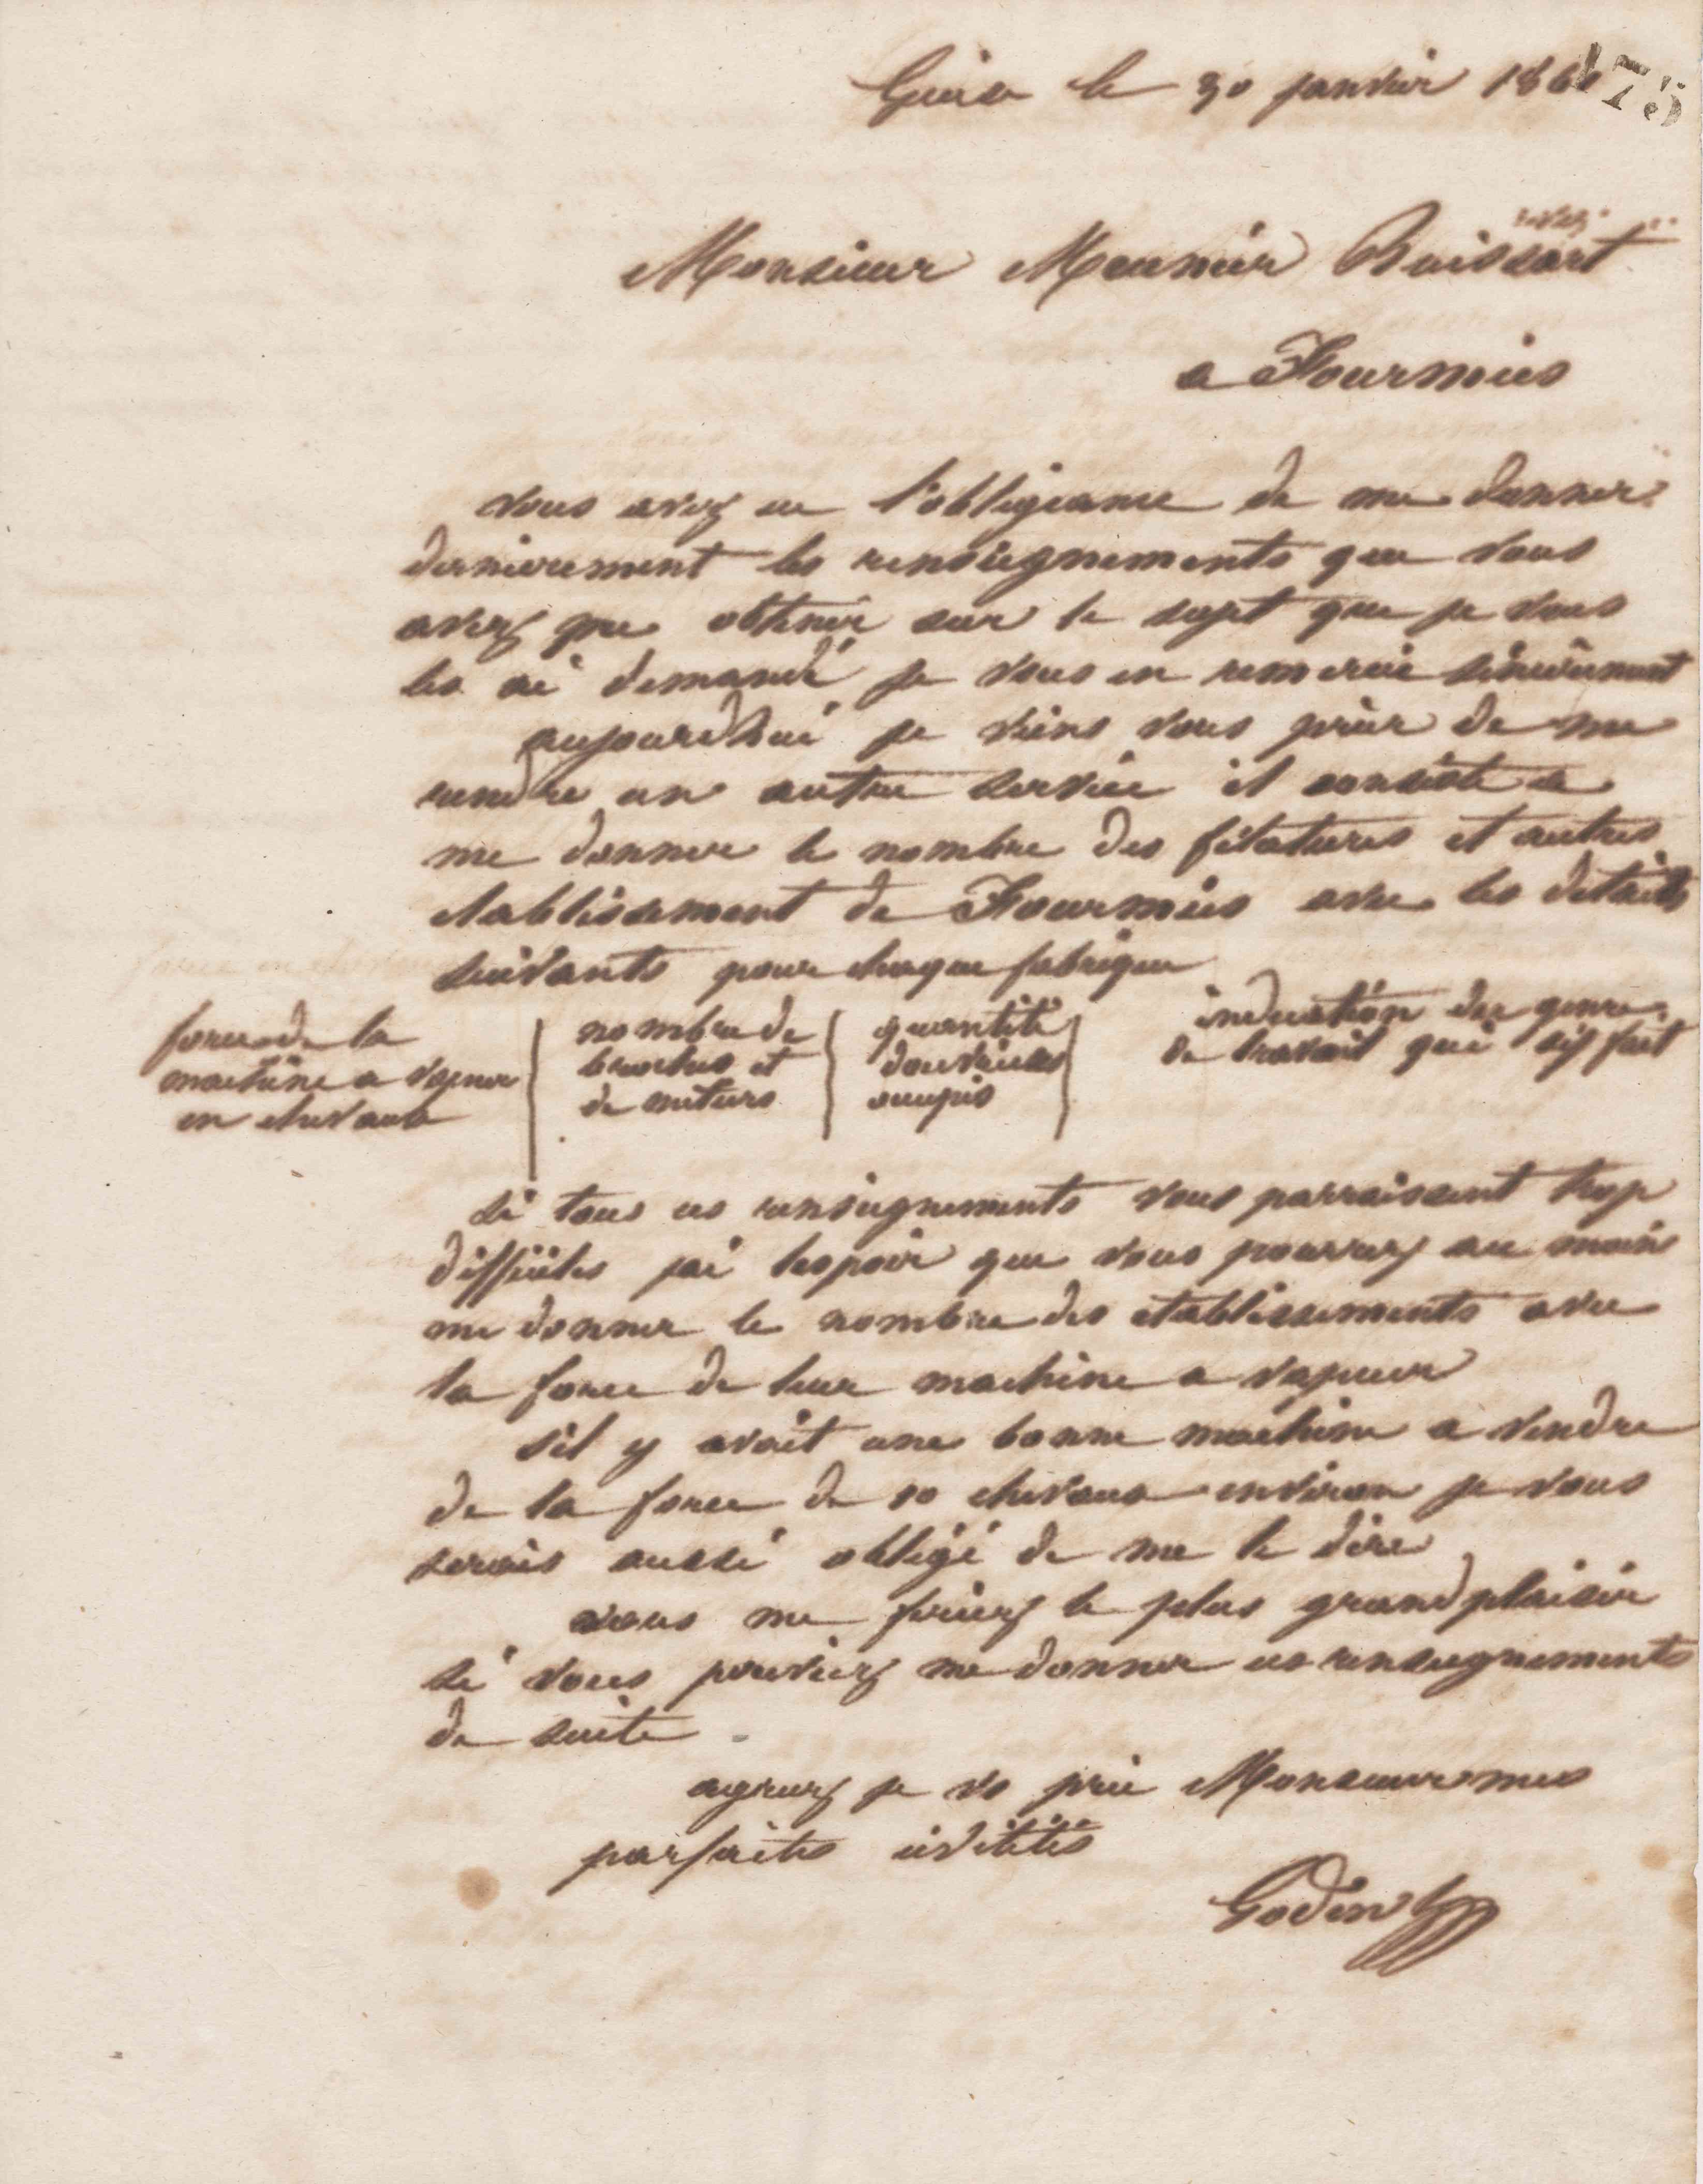 Guise le 30 janvier 186
175
Monsieur Meunier Buissart
a Fourmies
vous avez eu l'obligeance de me donner
dernierement les renseignements que vous
avez pu obtenir sur le sujet que je vous
les ai demandé je vous en remercie sincèrement
aujourdhui je viens vous prier de me
rendre un autre service il consiste a
me donner le nombre des filatures et autres
etablissement de Fourmies avec les details
suivants pour chaque fabrique
force de la
machine a vapeur
en chevaux
nombre de
broches et
de métiers
quantité
douvriers
occupés
indication du genre
de travail qui sy fait
si tous ces renseignements vous parraissent trop
difficiles jai lespoir que vous pourrez au moins
me donner le nombre des etablissements avec
la force de leur machine a vapeur
sil y avait une bonne machine a vendre
de la force de 10 chevaux environ je vous
serais aussi obligé de me le dire
vous me feriez le plus grand plaisir
si vous pouviez me donner ces renseignements
de suite
agreez je vs prie Monsieur mes
parfaites civilités
Godin